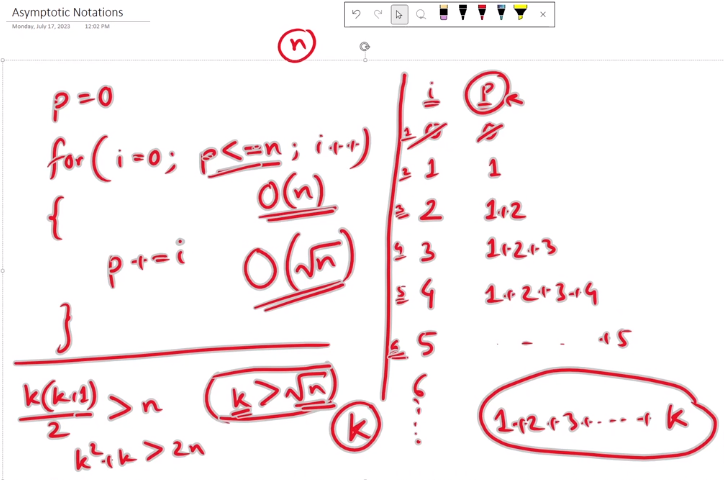 Asymptotic Notations
Monday, July 17, 2023 12:02 PM
n
p = 0
for ( i = 0 ; p <= n ; i++ )
{
O(n)
p += i
O(√n)
}
k(k+1)/2 > n
k > √n
k² + k > 2n
k
i p
1 0 0
2 1 1
3 2 1+2
4 3 1+2+3
5 4 1+2+3+4
6 5 - - . +5
6
1+2+3+ - - - - + k